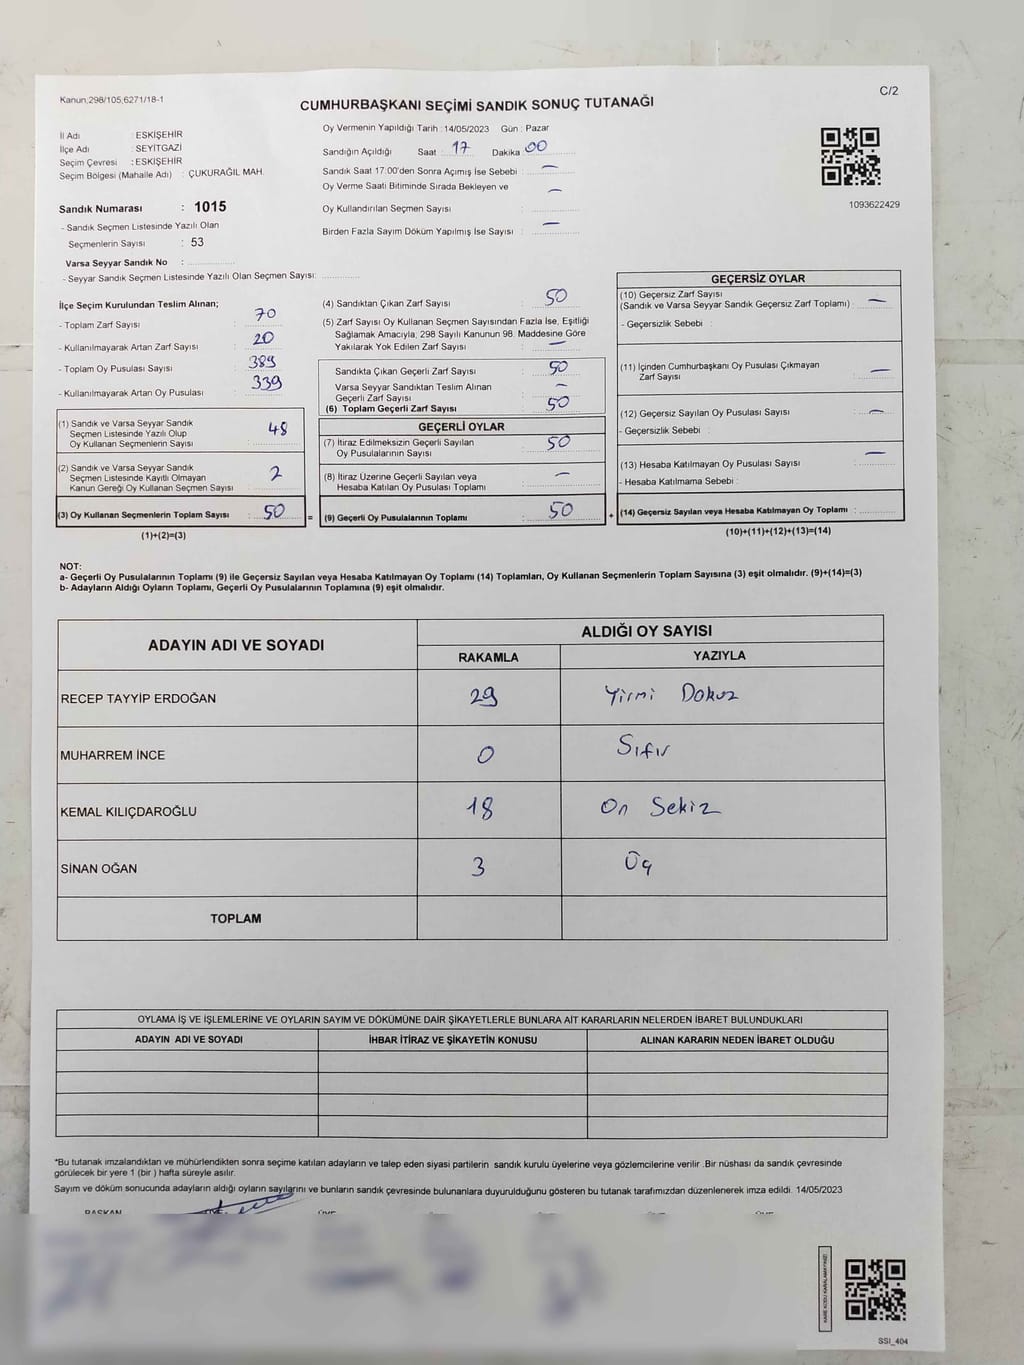 Kanun;298/105;6271/18-1
C/2
CUMHURBAŞKANI SEÇİMİ SANDIK SONUÇ TUTANAĞI
İl Adı : ESKİŞEHİR
İlçe Adı : SEYİTGAZİ
Seçim Çevresi : ESKİŞEHİR
Seçim Bölgesi (Mahalle Adı) : ÇUKURAĞIL MAH.
Sandık Numarası : 1015
- Sandık Seçmen Listesinde Yazılı Olan
Seçmenlerin Sayısı : 53
Varsa Seyyar Sandık No :
- Seyyar Sandık Seçmen Listesinde Yazılı Olan Seçmen Sayısı:
Oy Vermenin Yapıldığı Tarih : 14/05/2023 Gün : Pazar
Sandığın Açıldığı Saat : 17 Dakika : 00
Sandık Saat 17:00'den Sonra Açımış İse Sebebi : —
Oy Verme Saati Bitiminde Sırada Bekleyen ve —
Oy Kullandırılan Seçmen Sayısı :
Birden Fazla Sayım Döküm Yapılmış İse Sayısı : —
1093622429
İlçe Seçim Kurulundan Teslim Alınan;
- Toplam Zarf Sayısı : 70
- Kullanılmayarak Artan Zarf Sayısı : 20
- Toplam Oy Pusulası Sayısı : 389
- Kullanılmayarak Artan Oy Pusulası : 339
(1) Sandık ve Varsa Seyyar Sandık
Seçmen Listesinde Yazılı Olup
Oy Kullanan Seçmenlerin Sayısı : 48
(2) Sandık ve Varsa Seyyar Sandık
Seçmen Listesinde Kayıtlı Olmayan
Kanun Gereği Oy Kullanan Seçmen Sayısı : 2
(3) Oy Kullanan Seçmenlerin Toplam Sayısı : 50 =
(1)+(2)=(3)
(4) Sandıktan Çıkan Zarf Sayısı : 50
(5) Zarf Sayısı Oy Kullanan Seçmen Sayısından Fazla İse, Eşitliği
Sağlamak Amacıyla; 298 Sayılı Kanunun 98. Maddesine Göre
Yakılarak Yok Edilen Zarf Sayısı : —
Sandıkta Çıkan Geçerli Zarf Sayısı : 50
Varsa Seyyar Sandıktan Teslim Alınan
Geçerli Zarf Sayısı : —
(6) Toplam Geçerli Zarf Sayısı : 50
GEÇERLİ OYLAR
(7) İtiraz Edilmeksizin Geçerli Sayılan
Oy Pusulalarının Sayısı : 50
(8) İtiraz Üzerine Geçerli Sayılan veya
Hesaba Katılan Oy Pusulası Toplamı : —
(9) Geçerli Oy Pusulalarının Toplamı : 50 +
GEÇERSİZ OYLAR
(10) Geçersiz Zarf Sayısı
(Sandık ve Varsa Seyyar Sandık Geçersiz Zarf Toplamı) : —
- Geçersizlik Sebebi :
(11) İçinden Cumhurbaşkanı Oy Pusulası Çıkmayan
Zarf Sayısı : —
(12) Geçersiz Sayılan Oy Pusulası Sayısı : —
- Geçersizlik Sebebi :
(13) Hesaba Katılmayan Oy Pusulası Sayısı : —
- Hesaba Katılmama Sebebi :
(14) Geçersiz Sayılan veya Hesaba Katılmayan Oy Toplamı :
(10)+(11)+(12)+(13)=(14)
NOT:
a- Geçerli Oy Pusulalarının Toplamı (9) ile Geçersiz Sayılan veya Hesaba Katılmayan Oy Toplamı (14) Toplamları, Oy Kullanan Seçmenlerin Toplam Sayısına (3) eşit olmalıdır. (9)+(14)=(3)
b- Adayların Aldığı Oyların Toplamı, Geçerli Oy Pusulalarının Toplamına (9) eşit olmalıdır.
ADAYIN ADI VE SOYADI ALDIĞI OY SAYISI
RAKAMLA YAZIYLA
RECEP TAYYİP ERDOĞAN 29 Yirmi Dokuz
MUHARREM İNCE 0 Sıfır
KEMAL KILIÇDAROĞLU 18 On Sekiz
SİNAN OĞAN 3 Üç
TOPLAM
OYLAMA İŞ VE İŞLEMLERİNE VE OYLARIN SAYIM VE DÖKÜMÜNE DAİR ŞİKAYETLERLE BUNLARA AİT KARARLARIN NELERDEN İBARET BULUNDUKLARI
ADAYIN ADI VE SOYADI İHBAR İTİRAZ VE ŞİKAYETİN KONUSU ALINAN KARARIN NEDEN İBARET OLDUĞU
*Bu tutanak imzalandıktan ve mühürlendikten sonra seçime katılan adayların ve talep eden siyasi partilerin sandık kurulu üyelerine veya gözlemcilerine verilir .Bir nüshası da sandık çevresinde
görülecek bir yere 1 (bir ) hafta süreyle asılır.
Sayım ve döküm sonucunda adayların aldığı oyların sayılarını ve bunların sandık çevresinde bulunanlara duyurulduğunu gösteren bu tutanak tarafımızdan düzenlenerek imza edildi. 14/05/2023
BAŞKAN
KARE KODU KARALAMAYINIZ!
SSI_404